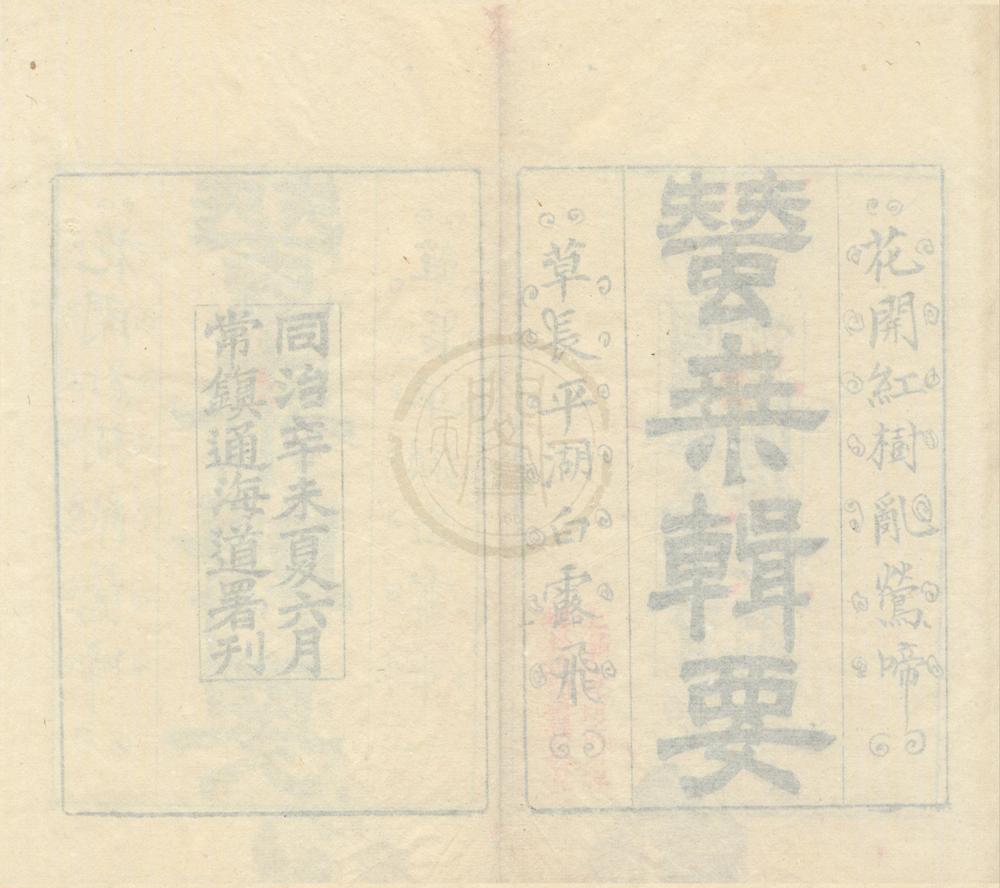 花開紅樹亂鶯啼
蠶桒輯要
草長平湖白露飛
同治辛未夏六月
常鎮通海道署刊